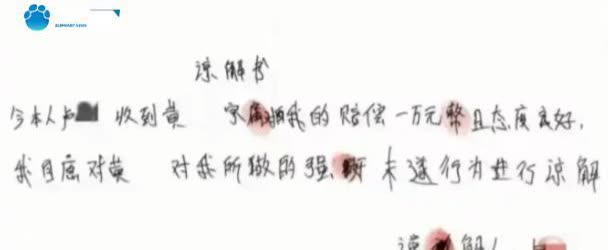 谅解书
今本人卢 收到黄 家属 我的赔偿一万元整且态度良好,
我自愿对黄 对我所做的强 未遂行为进行谅解
谅解人